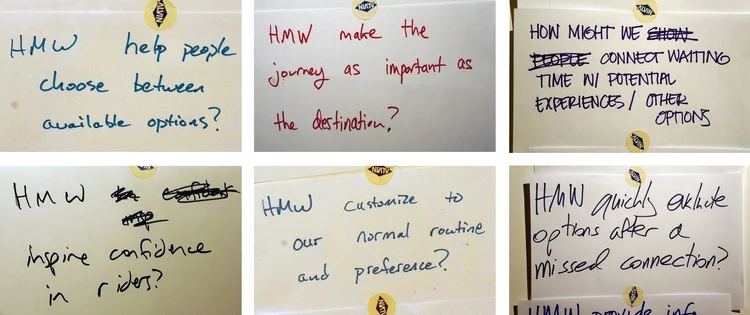 HMW help people
choose between
available options?
HMW make the
journey as important as
the destination?
HOW MIGHT WE SHOW
PEOPLE CONNECT WAITING
TIME W/ POTENTIAL
EXPERIENCES/ OTHER
OPTIONS
HMW
inspire confidence
in riders?
HMW customize to
our normal routine
and preference?
HMW quickly evaluate
options after a
missed connection?
HMW provide info